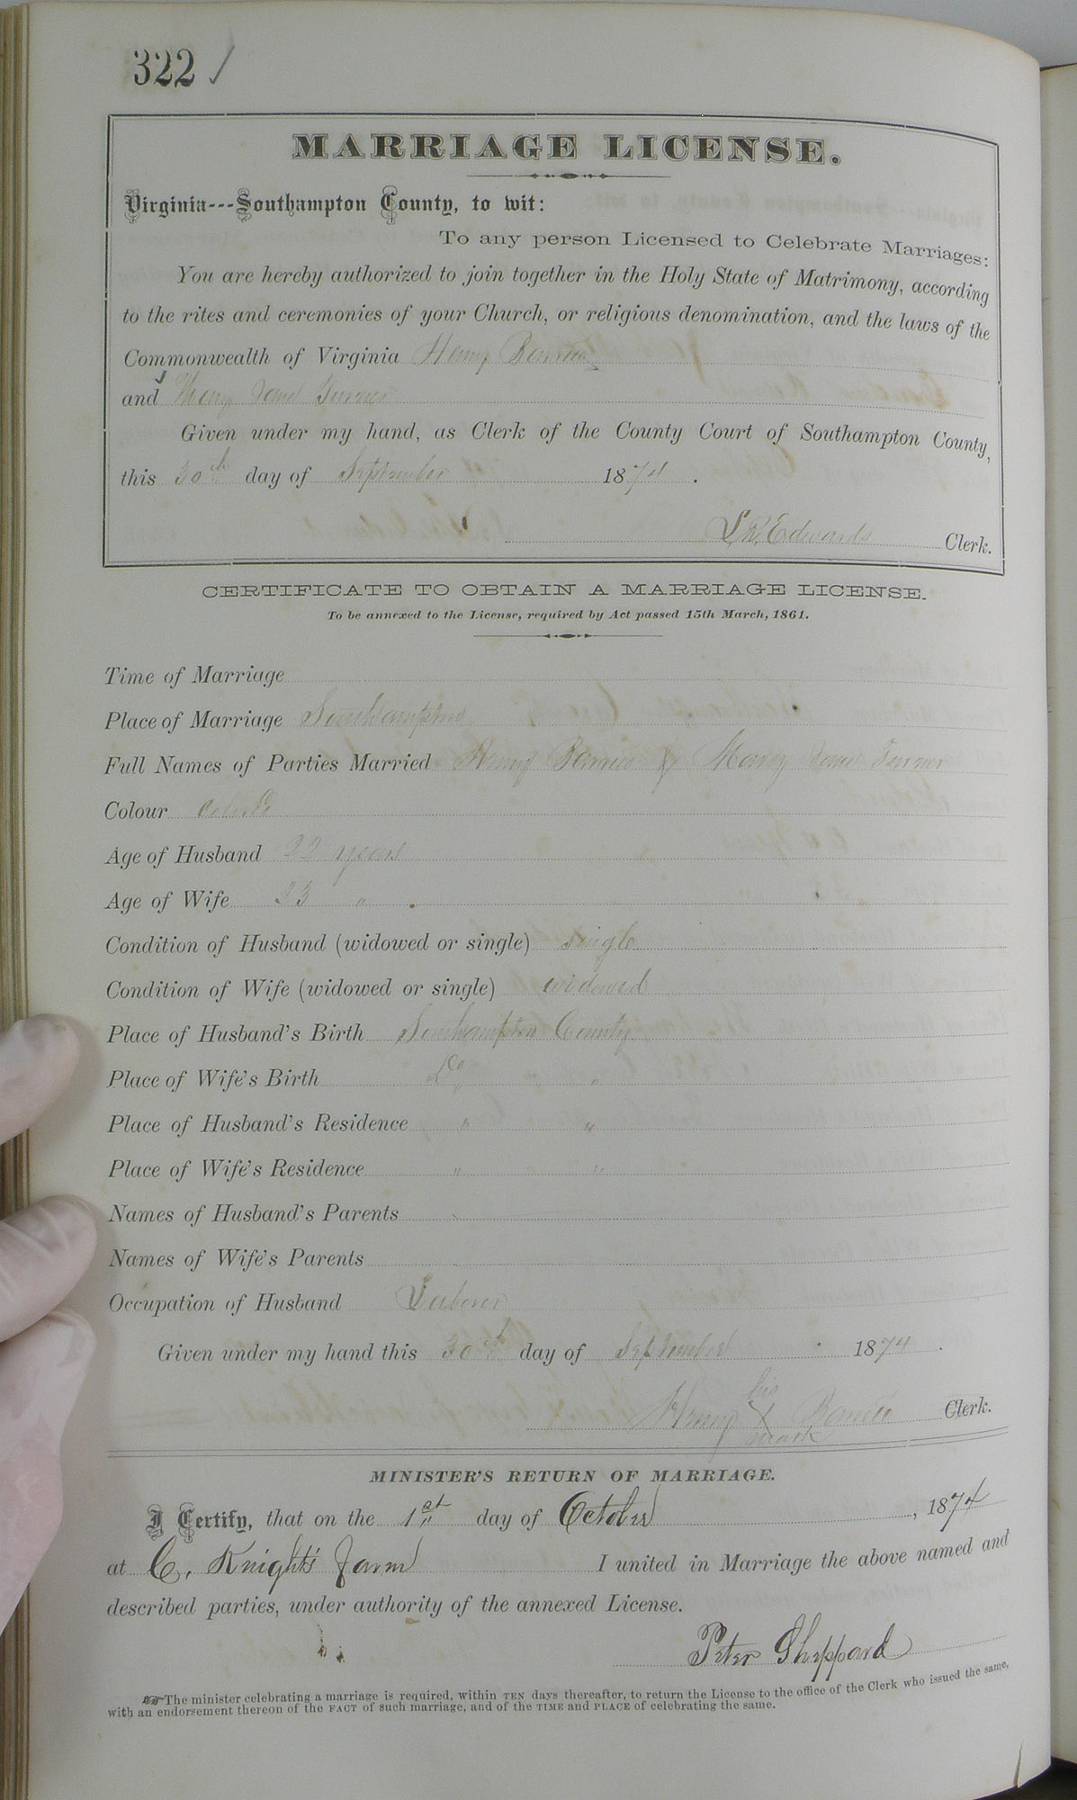 322
MARRIAGE LICENSE.
Virginia---Southampton County, to wit:
To any person Licensed to Celebrate Marriages:
You are hereby authorized to join together in the Holy State of Matrimony, according
to the rites and ceremonies of your Church, or religious denomination, and the laws of the
Commonwealth of Virginia Henry
and Mary Jane Turner
Given under my hand, as Clerk of the County Court of Southampton County,
this 30th day of September 1874.
L. R. Edwards Clerk.
CERTIFICATE TO OBTAIN A MARRIAGE LICENSE.
To be annexed to the License, required by Act passed 15th March, 1861.
Time of Marriage
Place of Marriage Southampton
Full Names of Parties Married Henry & Mary Jane Turner
Colour
Age of Husband 22 years
Age of Wife 23 "
Condition of Husband (widowed or single) single
Condition of Wife (widowed or single) widowed
Place of Husband's Birth Southampton County
Place of Wife's Birth Do "
Place of Husband's Residence " "
Place of Wife's Residence " "
Names of Husband's Parents
Names of Wife's Parents
Occupation of Husband Laborer
Given under my hand this 30th day of September 1874.
his
Henry X Clerk.
mark
MINISTER'S RETURN OF MARRIAGE.
I Certify, that on the 1st day of October, 1874
at C. Knight's farm I united in Marriage the above named and
described parties, under authority of the annexed License.
Peter Sheppard
The minister celebrating a marriage is required, within TEN days thereafter, to return the License to the office of the Clerk who issued the same,
with an endorsement thereon of the FACT of such marriage, and of the TIME and PLACE of celebrating the same.